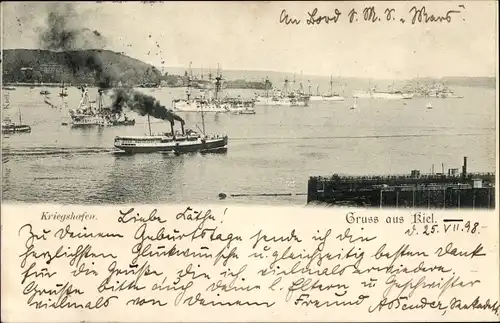 An Bord S. M. S. "Mars".
Kriegshafen.
Gruss aus Kiel.
Liebe Käthe!
d. 25. VII. 98.
Zu Deinem Geburtstage sende ich die
herzlichsten Glückwünsche u. gleichzeitig besten Dank
für die Grüße, die ich vielmals erwiedere
Grüße bitte auch deine l. Eltern u. Geschwister
vielmals von deinem Freund
Seekadett